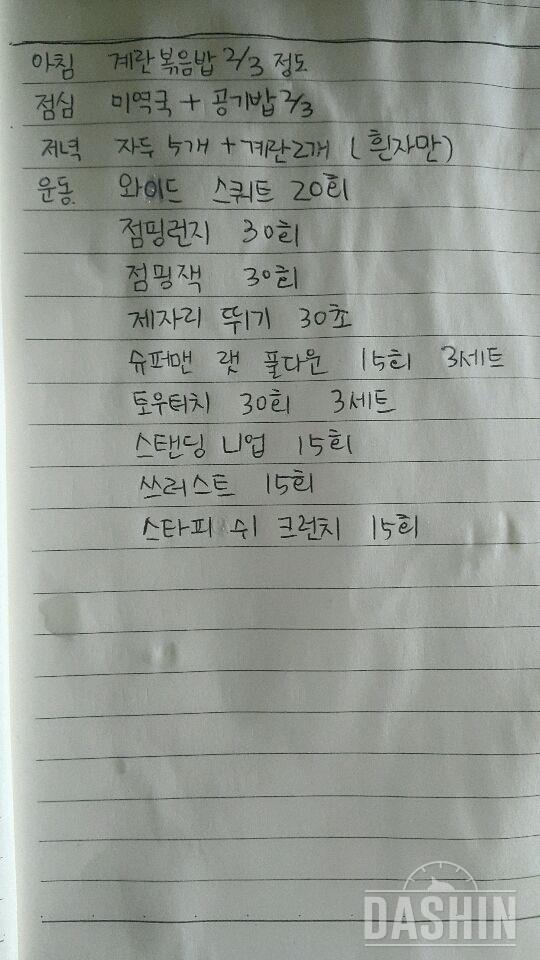 아침 계란볶음밥 2/3 정도
점심 미역국 + 공기밥 2/3
저녁 자두 5개 + 계란2개 (흰자만)
운동 와이드 스쿼트 20회
점핑런지 30회
점핑잭 30회
제자리 뛰기 30초
슈퍼맨 랫 풀다운 15회 3세트
토우터치 30회 3세트
스탠딩 니업 15회
쓰러스트 15회
스타피쉬 크런치 15회
DASHIN